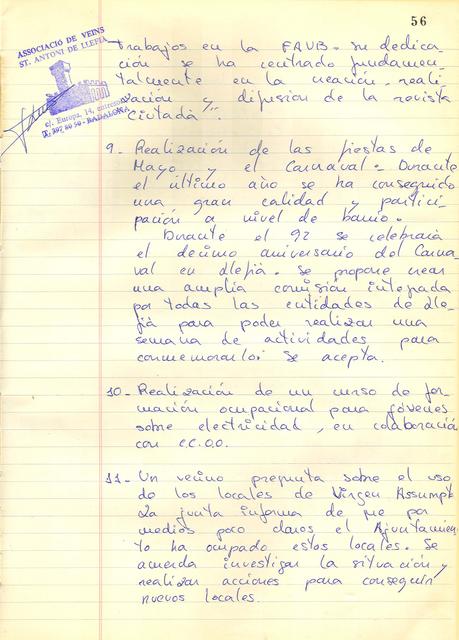 56
ASSOCIACIÓ DE VEINS
ST. ANTONI DE LLEFIÀ
c/. Europa, 14, entresol
397 80 50 - BADALONA
Trabajos en la FAVB. Su dedica-
ción se ha centrado fundamen-
talmente en la creación, reali-
zación y difusión de la revista
"Ciutadà".
9- Realización de las fiestas de
Mayo y el Carnaval - Durante
el último año se ha conseguido
una gran calidad y partici-
pación a nivel de barrio.
Durante el 92 se celebrará
el décimo aniversario del Carna-
val en Llefià. Se propone crear
una amplia comisión integrada
por todas las entidades de Lle-
fià para poder realizar una
semana de actividades para
conmemorarlo. Se acepta.
10- Realización de un curso de for-
mación ocupacional para jóvenes
sobre electricidad, en colaboración
con CC.OO.
11- Un vecino pregunta sobre el uso
de los locales de Virgen Assumpta
La junta informa de que por
medios poco claros el Ajuntamien
to ha ocupado estos locales. Se
acuerda investigar la situación y
realizar acciones para conseguir
nuevos locales.